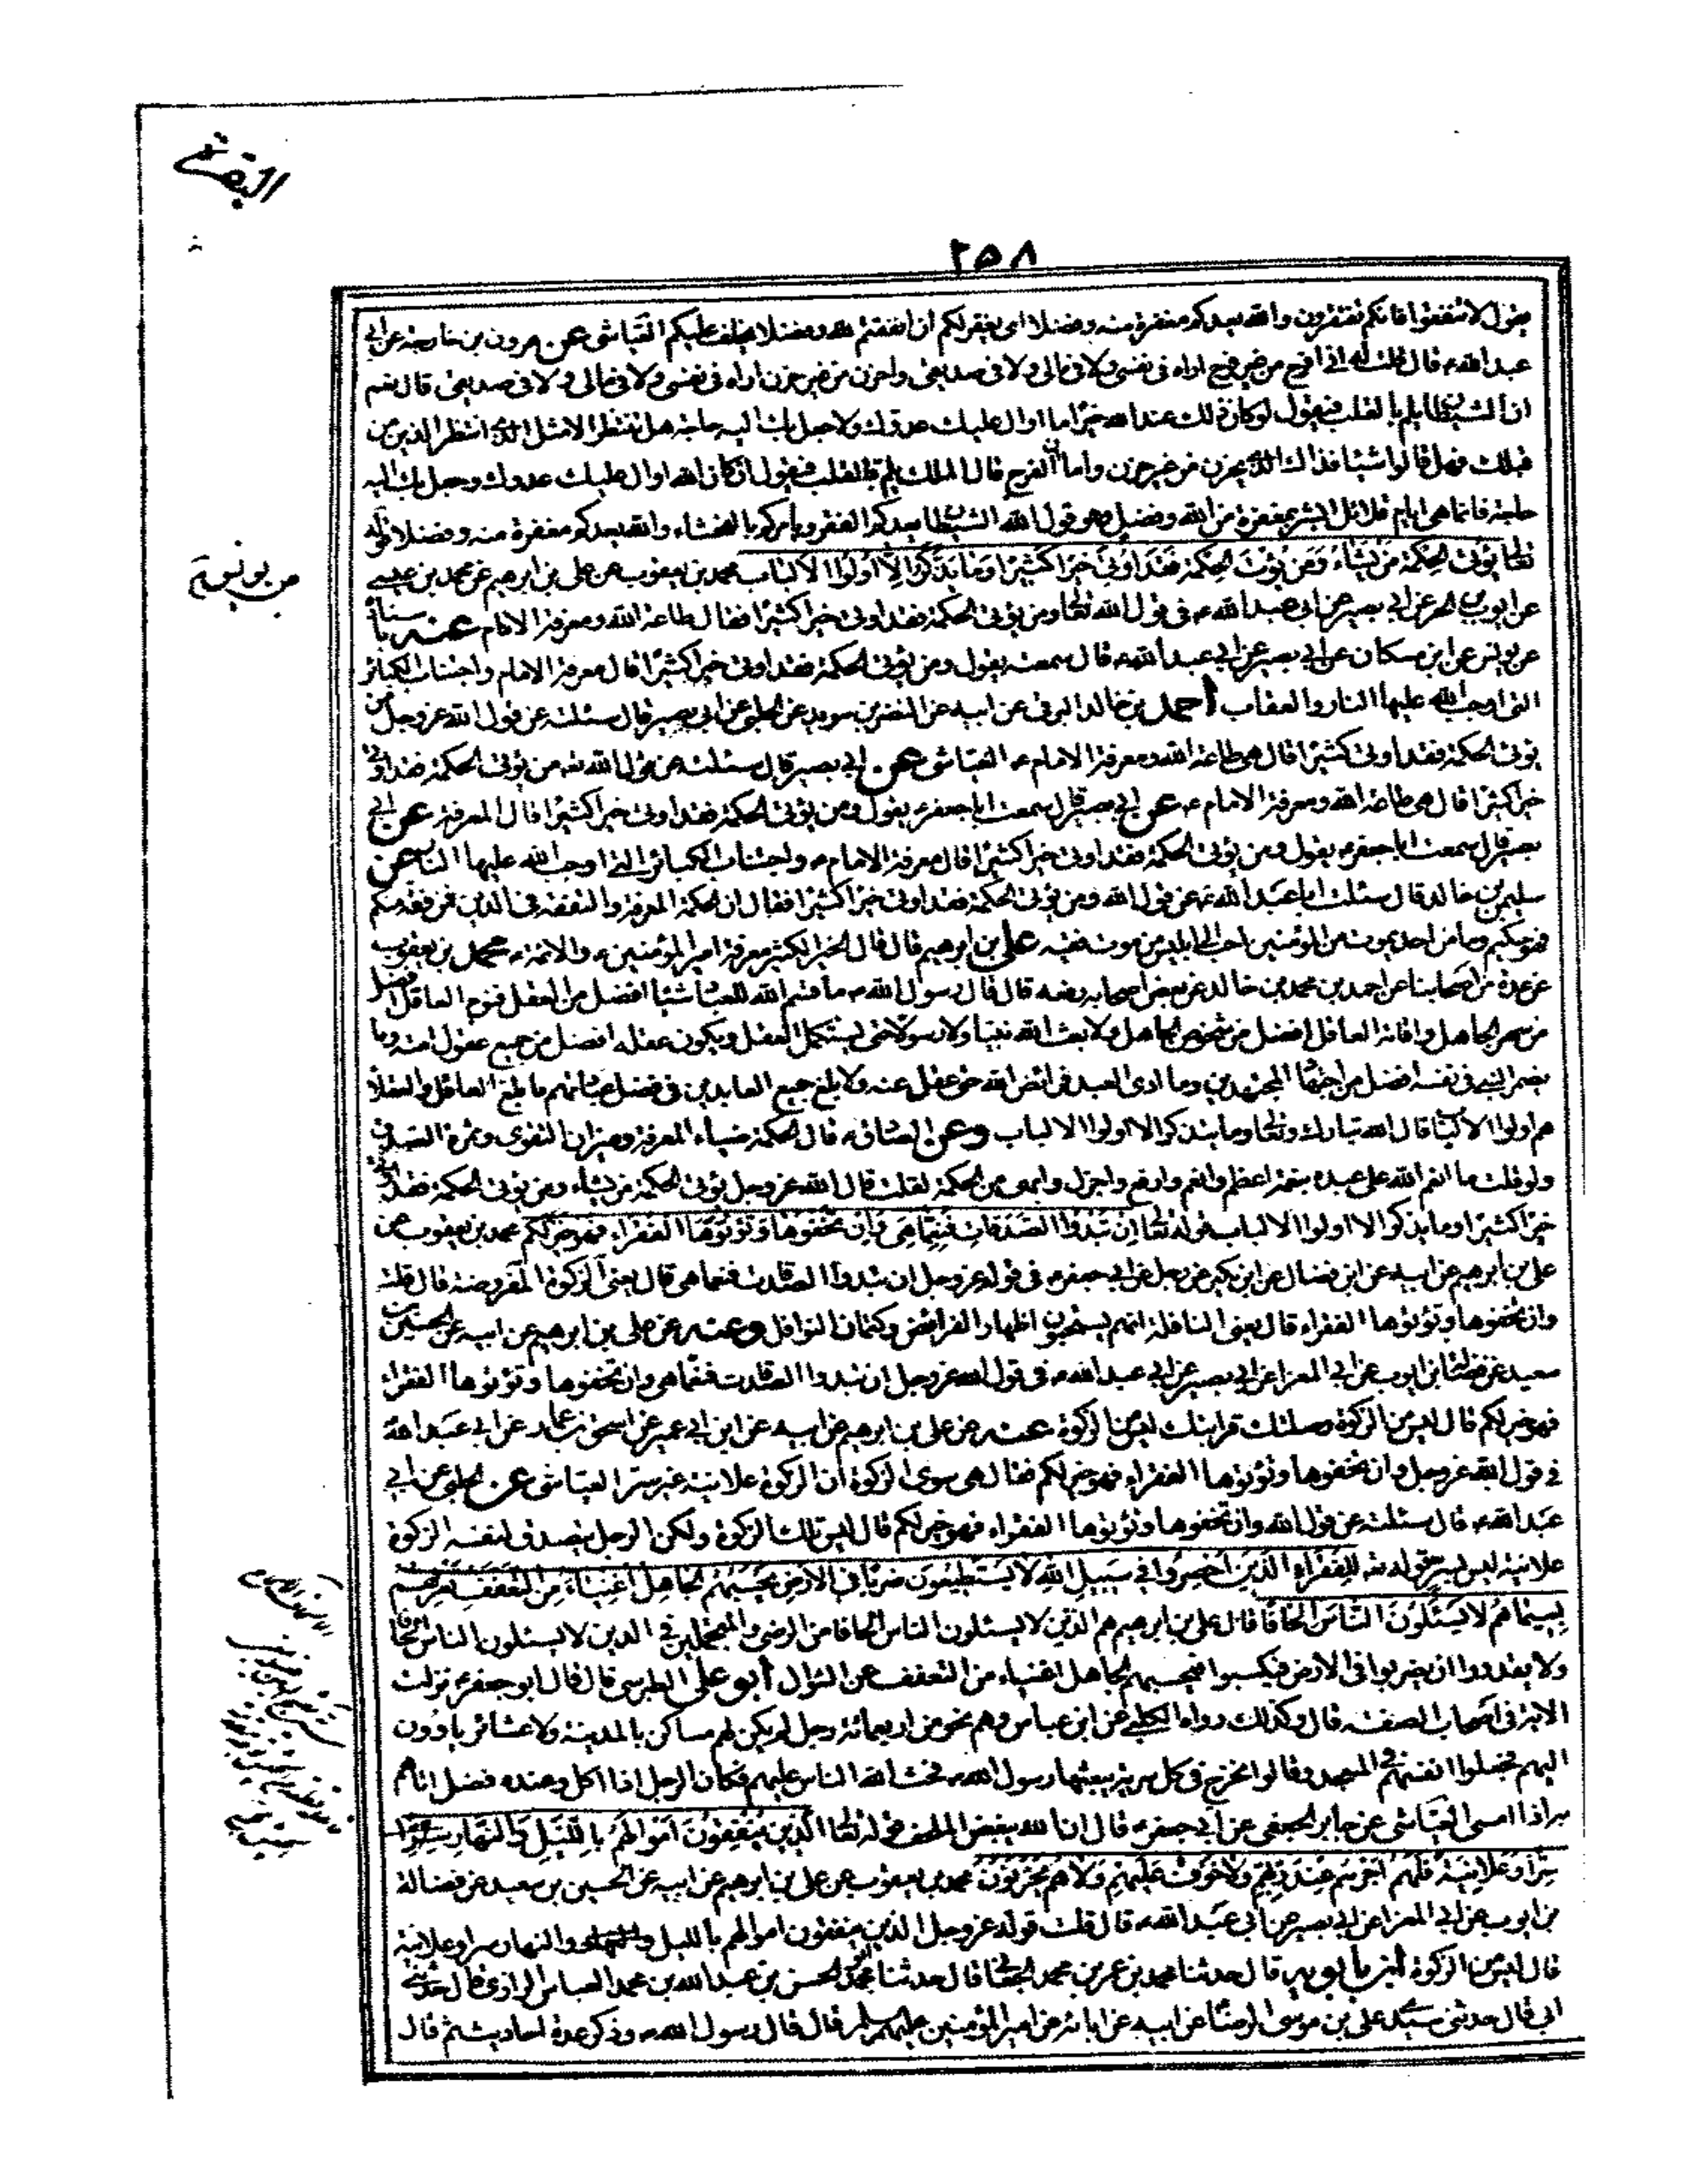 البقرة
٢٥٨
يقول لا تنفقوا فانكم تفتقرون والله يعدكم مغفرة منه وفضلا اى يغفر لكم ان انفقتم لله وفضلا يخلف عليكم العياشى عن هرون بن خارجة عن ابى
عبد الله ع قال قلت له انى افرح من غير فرح اراه فى نفسى ولا فى مالى ولا فى صديقى واحزن من غير حزن اراه فى نفسى ولا فى مالى ولا فى صديقى قال نعم
ان الشيطان يلم بالقلب فيقول لو كان ذلك عند الله خيرا ما اوال عليك عدوك ولا جعل بك اليه حاجة هل تنتظر الا مثل الذى انتظر الذين من
قبلك فهل قالوا شيئا فذاك الذى يحزن من غير حزن واما الفرح قال الملك يلم بالقلب فيقول ان كان الله اوال عليك عدوك وجعل بك اليه
حاجة فانما هى ايام قلائل ابشر بمغفرة من الله وفضل وهو قول الله الشيطان يعدكم الفقر ويأمركم بالفحشاء والله يعدكم مغفرة منه وفضلا قوله
تعالى يُؤْتى الحِكمَةَ مَن يَشاءُ وَمَن يُؤتَ الحِكمَةَ فَقَد اُوتِىَ خَيرًا كَثيرًا وَما يَذَّكَّرُ اِلّا اُولُوا الاَلبابِ محمد بن يعقوب عن على بن ابرهيم عن محمد بن عيسى
عن يونس
عن ايوب بن الحر عن ابى بصير عن ابى عبد الله ع فى قول الله تعالى ومن يؤتى الحكمة فقد اوتى خيرا كثيرا فقال طاعة الله ومعرفة الامام عنه باسناده
عن يونس عن ابن مسكان عن ابى بصير عن ابى عبد الله ع قال سمعته يقول ومن يؤتى الحكمة فقد اوتى خيرا كثيرا قال معرفة الامام واجتناب الكبائر
التى اوجب الله عليها النار والعقاب احمد بن خالد البرقى عن ابيه عن النضر بن سويد عن الحلبى عن ابى بصير قال سئلته عن قول الله عز وجل من
يؤتى الحكمة فقد اوتى كثيرا قال هى طاعة الله ومعرفة الامام ع العياشى عن ابى بصير قال سئلته عن قول الله من يؤتى الحكمة فقد اوتى
خيرا كثيرا قال هى طاعة الله ومعرفة الامام ع عن ابى بصير قال سمعت ابا جعفر ع يقول ومن يؤتى الحكمة فقد اوتى خيرا كثيرا قال المعرفة عن ابى
بصير قال سمعت ابا جعفر ع يقول ومن يؤتى الحكمة فقد اوتى خيرا كثيرا قال معرفة الامام ع واجتناب الكبائر التى اوجب الله عليها النار عن
سليمن بن خالد قال سئلت ابا عبد الله ع عن قول الله ومن يؤتى الحكمة فقد اوتى خيرا كثيرا فقال ان الحكمة المعرفة والتفقه فى الدين فمن فقه منكم
فهو حكيم وما من احد يموت من المؤمنين احب الى ابليس من موت فقيه على بن ابرهيم قال قال الخير الكثير معرفة امير المؤمنين ع والائمة ع محمد بن يعقوب
عن عدة من اصحابنا عن احمد بن محمد بن خالد عن بعض اصحابه رفعه قال قال رسول الله ص ما قسم الله للعباد شيئا افضل من العقل فنوم العاقل افضل
من سهر الجاهل واقامة العاقل افضل من شخوص الجاهل ولا بعث الله نبيا ولا رسولا حتى يستكمل العقل ويكون عقله افضل من جميع عقول امته وما
يضمر النبى فى نفسه افضل من اجتهاد المجتهدين وما ادى العبد فرائض الله حتى عقل عنه ولا بلغ جميع العابدين فى فضل عبادتهم ما بلغ العاقل والعقلاء
هم اولوا الالباب قال الله تبارك وتعالى وما يتذكر الا اولوا الالباب وعن الصادق ع قال الحكمة ضياء المعرفة وميزان التقوى وثمرة الصدق
ولو قلت ما انعم الله على عبده بنعمة اعظم وانعم وارفع واجزل وابهى من الحكمة لقلت قال الله عز وجل يؤتى الحكمة من يشاء ومن يؤتى الحكمة فقد اوتى
خيرا كثيرا وما يذكر الا اولوا الالباب قوله تعالى اِن تُبدُوا الصَّدَقاتِ فَنِعِمّا هِىَ وَاِن تُخفُوها وَتُؤتُوهَا الفُقَراءَ فَهُوَ خَيرٌ لَكُم محمد بن يعقوب عن
على بن ابرهيم عن ابيه عن ابن فضال عن ابن بكير عن رجل عن ابى جعفر ع فى قوله عز وجل ان تبدوا الصدقات فنعما هى قال يعنى الزكوة المفروضة قال قلت
وان تخفوها وتؤتوها الفقراء قال يعنى النافلة انهم يستحبون اظهار الفرائض وكتمان النوافل وعنه عن على بن ابرهيم عن ابيه عن الحسين بن
سعيد عن فضالة بن ايوب عن ابى المعزا عن ابى بصير عن ابى عبد الله ع فى قول الله عز وجل ان تبدوا الصدقات فنعما هى وان تخفوها وتؤتوها الفقراء
فهو خير لكم قال ليس من الزكوة وصلتك قرابتك ليس من الزكوة عنه عن على بن ابرهيم عن ابيه عن ابن ابى عمير عن اسحق بن عمار عن ابى عبد الله
فى قول الله عز وجل وان تخفوها وتؤتوها الفقراء فهو خير لكم فقال هى سوى الزكوة ان الزكوة علانية غير سر العياشى عن الحلبى عن ابى
عبد الله ع قال سئلته عن قول الله وان تخفوها وتؤتوها الفقراء فهو خير لكم قال ليس تلك الزكوة ولكن الرجل يتصدق لنفسه الزكوة
علانية ليس بسر قوله لِلفُقَراءِ الَّذينَ اُحصِرُوا فى سَبيلِ اللهِ لا يَستَطيعُونَ ضَربًا فِى الاَرضِ يَحسَبُهُمُ الجاهِلُ اَغنِياءَ مِنَ التَّعَفُّفِ تَعرِفُهُم
بِسيماهُم لا يَسئَلُونَ النّاسَ اِلحافًا قال على بن ابرهيم هم الذين لا يسئلون الناس الحافا من الراضين والمتجملين فى الدين لا يسئلون الناس الحافا
ولا يقدروا ان يضربوا فى الارض فيكسبوا فيحسبهم الجاهل اغنياء من التعفف عن السؤال ابو على الطبرسى قال قال ابو جعفر ع نزلت
الاية فى اصحاب الصفة قال وكذلك رواه الكلبى عن ابن عباس وهم نحو من اربعمائة رجل لم يكن لهم مساكن بالمدينة ولا عشائر ياوون
اليهم فجعلوا انفسهم فى المسجد وقالوا نخرج فى كل سرية يبعثها رسول الله ص فحث الله الناس عليهم فكان الرجل اذا اكل وعنده فضل اتاهم
به اذا امسى العياشى عن جابر الجعفى عن ابى جعفر ع قال ان الله يبغض الملحف قوله تعالى اَلَّذينَ يُنفِقُونَ اَموالَهُم بِاللَّيلِ وَالنَّهارِ
سِرًّا وَعَلانِيَةً فَلَهُم اَجرُهُم عِندَ رَبِّهِم وَلا خَوفٌ عَلَيهِم وَلا هُم يَحزَنُونَ محمد بن يعقوب عن على بن ابرهيم عن ابيه عن الحسين بن سعيد عن فضالة
بن ايوب عن ابى المعزا عن ابى بصير عن ابى عبد الله ع قال قلت قوله عز وجل الذين ينفقون اموالهم بالليل والنهار سرا وعلانية
قال ليس من الزكوة ابن بابويه قال حدثنا محمد بن عمر بن محمد الجعابى قال حدثنا ابو محمد الحسن بن عبد الله بن محمد العباس الرازى قال حدثنى
ابى قال حدثنى سيدى على بن موسى الرضا عن ابيه عن ابائه عن امير المؤمنين عليهم السلم قال قال رسول الله ص وذكر عدة احاديث ثم قال